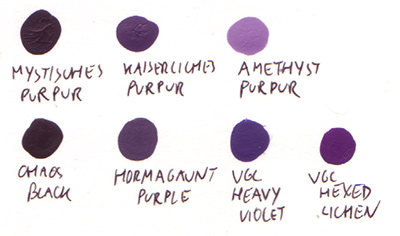 MYSTISCHES
PURPUR
KAISERLICHES
PURPUR
AMETHYST
PURPUR
CHAOS
BLACK
HORMAGAUNT
PURPLE
VGC
HEAVY
VIOLET
VGC
HEXED
LICHEN